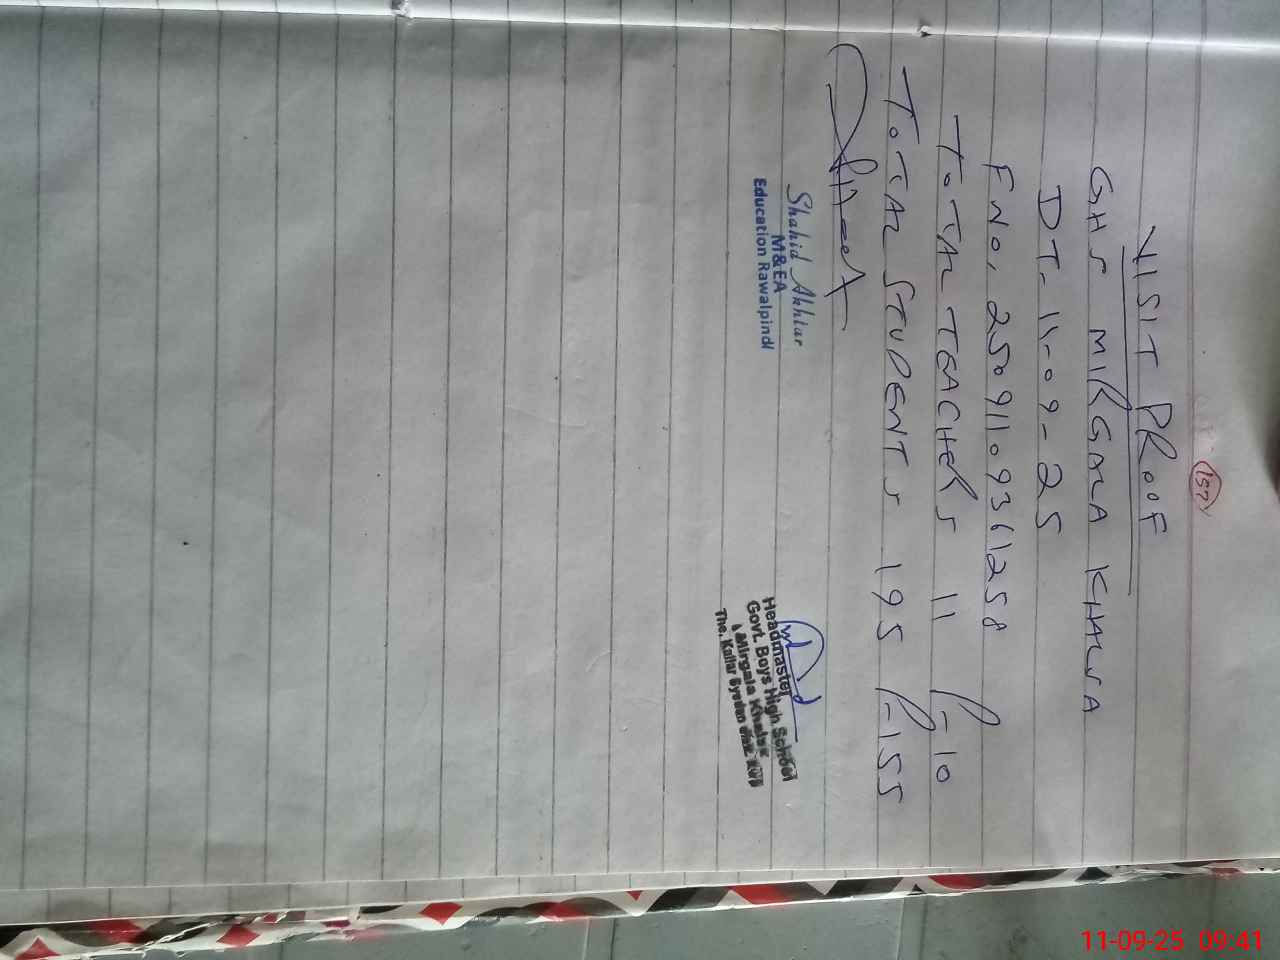 157
VISIT PROOF
GHS MIRGALA KHALSA
DT- 11-09-25
FNO. 25091109361258
TOTAL TEACHERS 11 P-10
TOTAL STUDENTS 195 P-155
Shahid Akhtar
M&EA
Education Rawalpindi
Headmaster
Govt. Boys High School
Mirgala Khalsa
The. Kallar Syedan
11-09-25 09:41